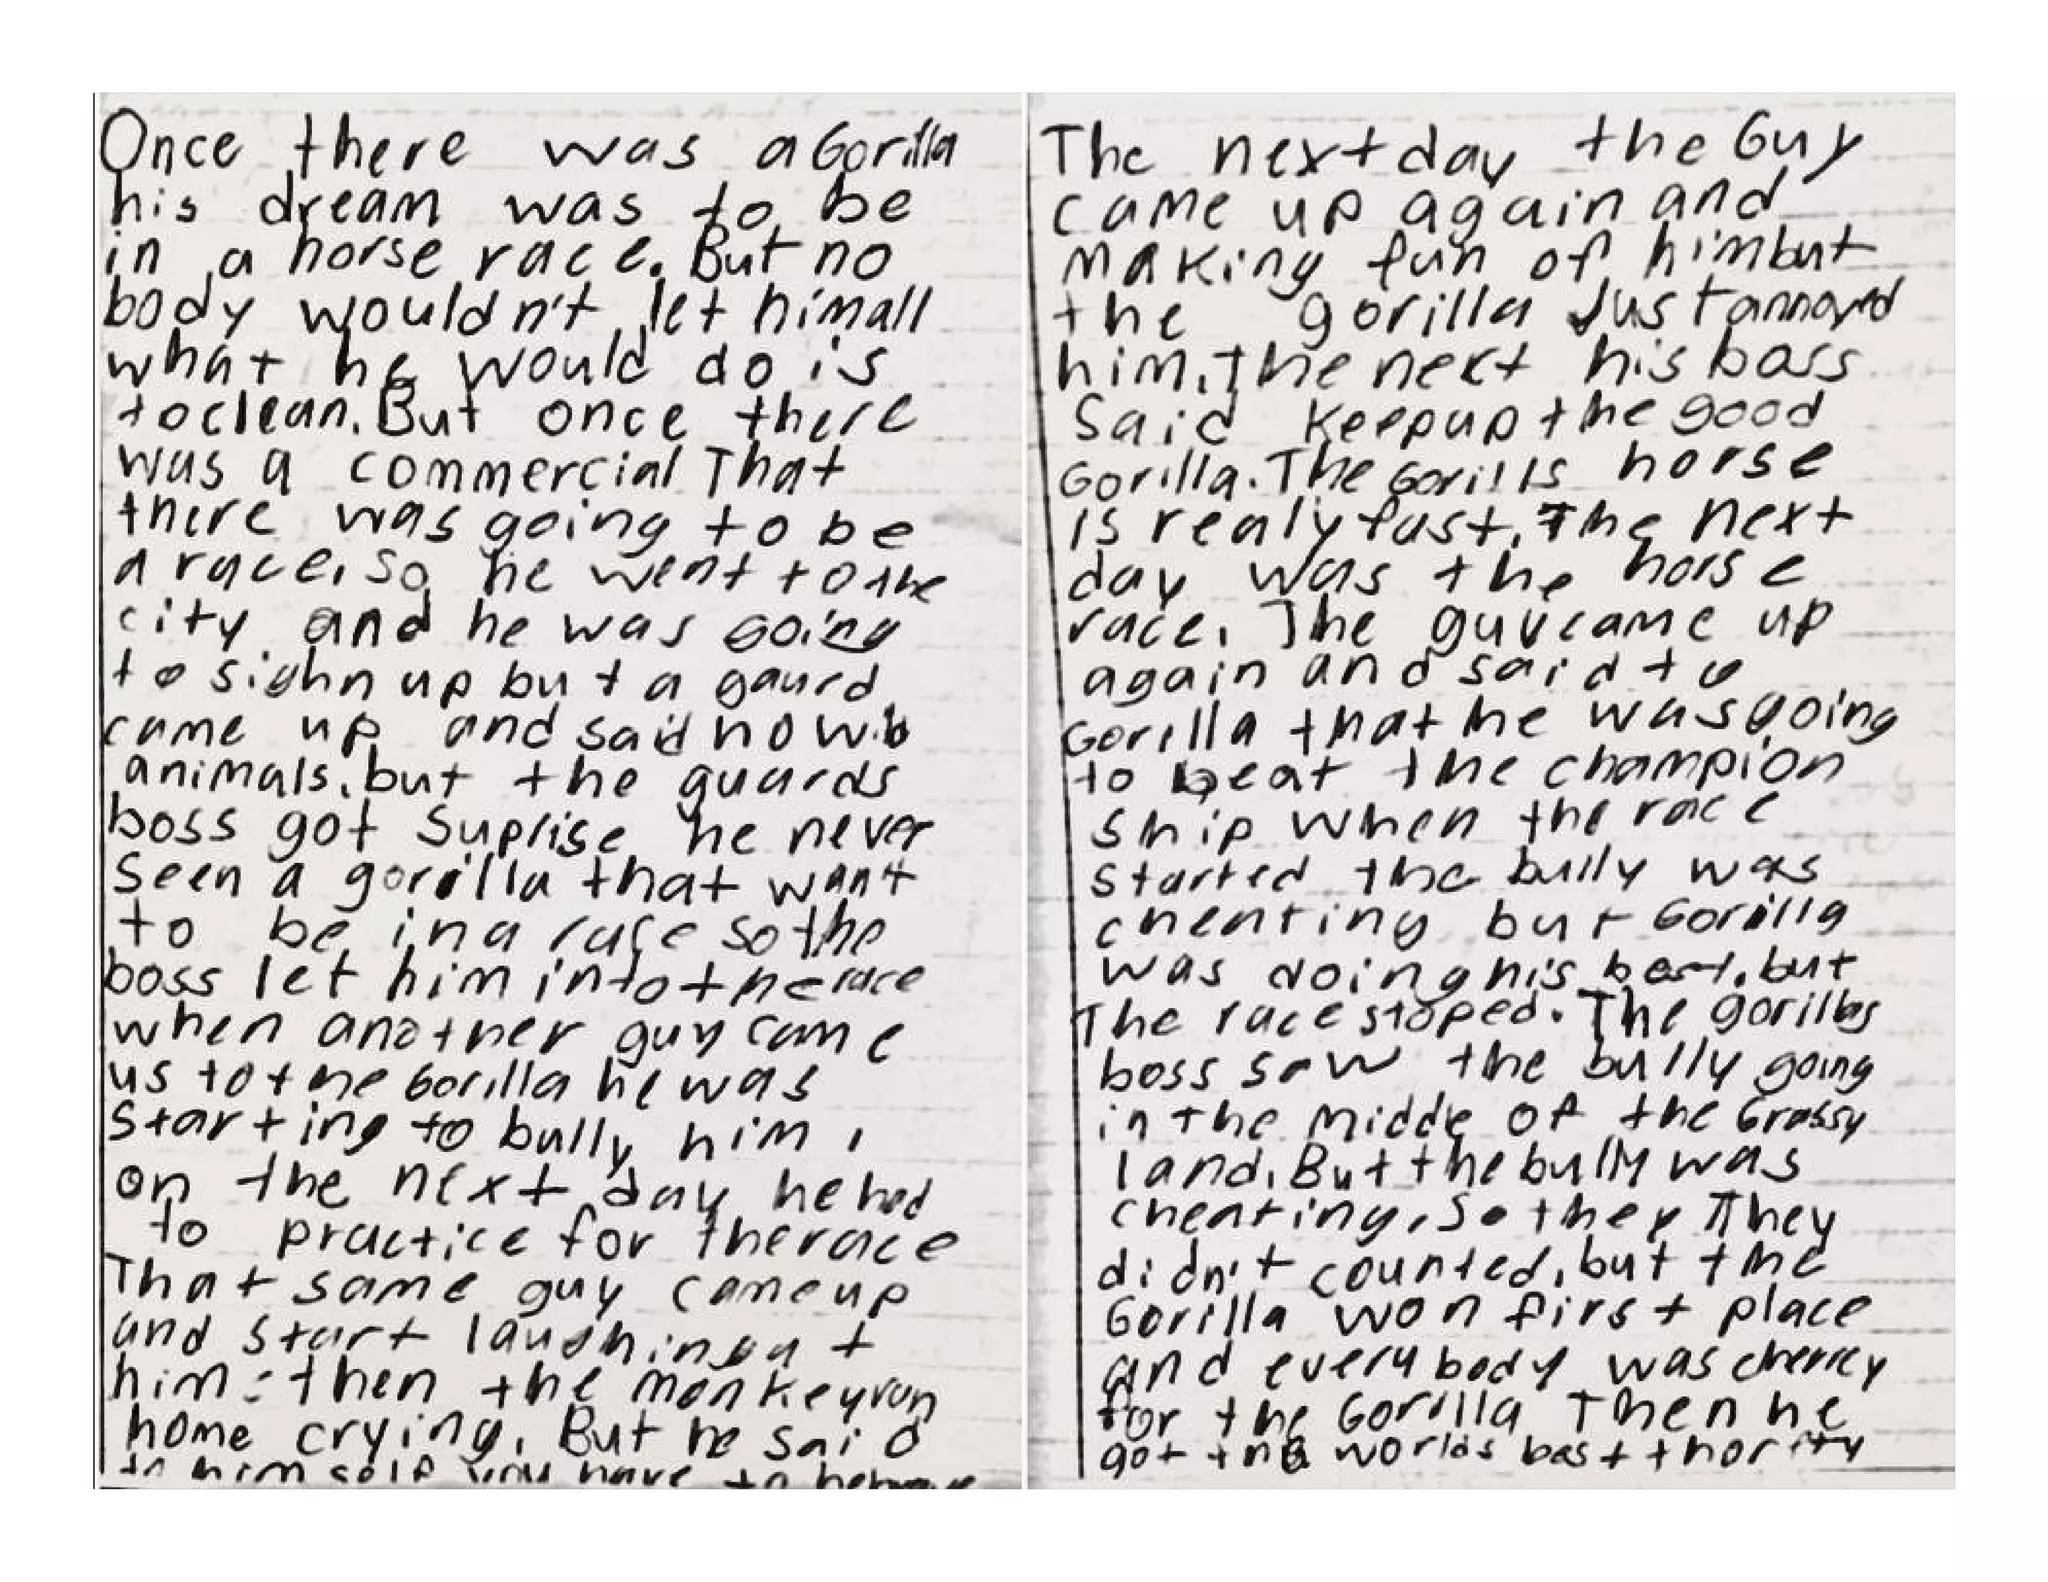 Once there was a Gorilla
his dream was to be
in a horse race. But no
body wouldn't let him all
what he would do is
to clean. But once there
was a commercial That
there was going to be
a race, so he went to the
city and he was going
to sighn up but a gaurd
came up and said no wib
animals, but the guards
boss got Suprise he never
seen a gorilla that want
to be in a race so the
boss let him into the race
when another guy came
us to the Gorilla he was
starting to bully him,
on the next day he had
to practice for the race
That same guy came up
and start laughing at
him. then the monkey run
home crying. But he said
to him self you have to
The next day the Guy
came up again and
making fun of him but
the gorilla Just annoyed
him. The next his boss
Said Keep up the good
Gorilla. The Gorills horse
is realy fast. The next
day was the horse
race. The guy came up
again and said to
Gorilla that he was going
to beat the champion
ship when the race
started the bully was
cheating but Gorilla
was doing his best, but
The race stoped. The gorillas
boss saw the bully going
in the middle of the Grassy
land. But the bully was
cheating, so they They
didn't counted, but the
Gorilla won first place
and every body was cherrey
for the Gorilla Then he
got the worlds best thority